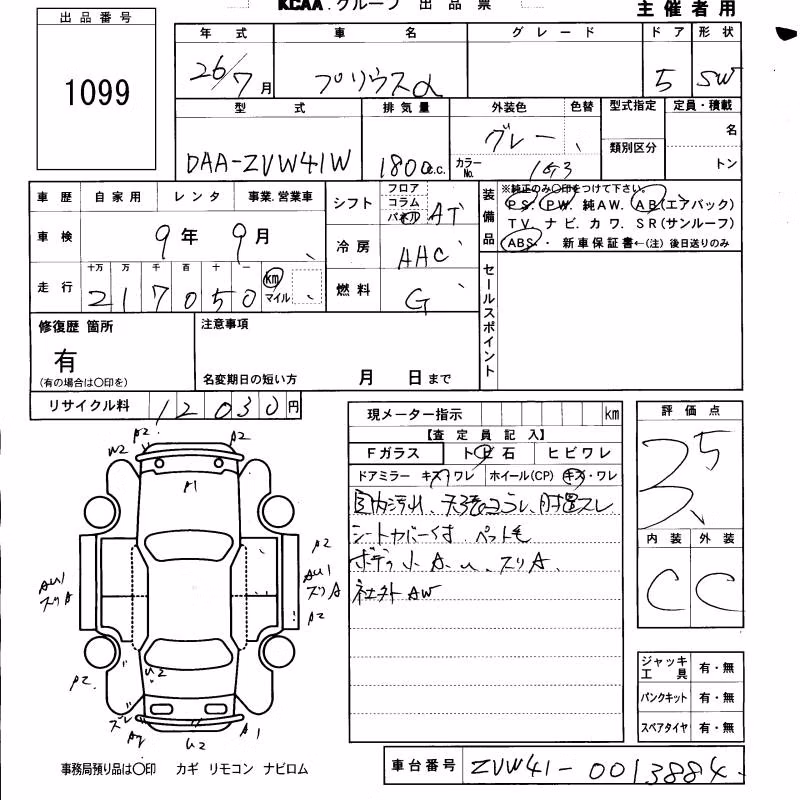 KCAA.グループ 出品票
主催者用
出品番号
1099
年式 車名 グレード ドア 形状
26/7月 プリウスα 5 SW
型式 排気量 外装色 色替 型式指定 定員・積載
DAA-ZVW41W 1800c.c. グレー 名
カラーNo. 1G3 類別区分 トン
車歴 自家用 レンタ 事業.営業車
車検 9年 9月
十万 万 千 百 十 一
走行 217050 km マイル
シフト フロア コラム パネル AT
冷房 AAC
燃料 G
装備品
※純正のみ〇印をつけて下さい。
PS. PW. 純AW. AB(エアバック)
TV. ナビ. カワ. SR(サンルーフ)
ABS・ ・ 新車保証書←(注) 後日送りのみ
セールスポイント
修復歴 箇所
有
(有の場合は〇印を)
注意事項
名変期日の短い方 月 日まで
リサイクル料 12030円
現メーター指示 km
【査定員記入】
Fガラス トビ石 ヒビワレ
ドアミラー キズ ワレ ホイール(CP) キズ・ワレ
シートカバー付 ペット毛
ボディ小A、U、スリA、
社外AW
評価点
3.5
内装 外装
C C
ジャッキ工具 有・無
パンクキット 有・無
スペアタイヤ 有・無
A2 U2 A2
A1
A2
AU1 スリA
AU1 スリA
A2
A2
U2
U2
A1
事務局預り品は〇印 カギ リモコン ナビロム
車台番号 ZVW41-0013884